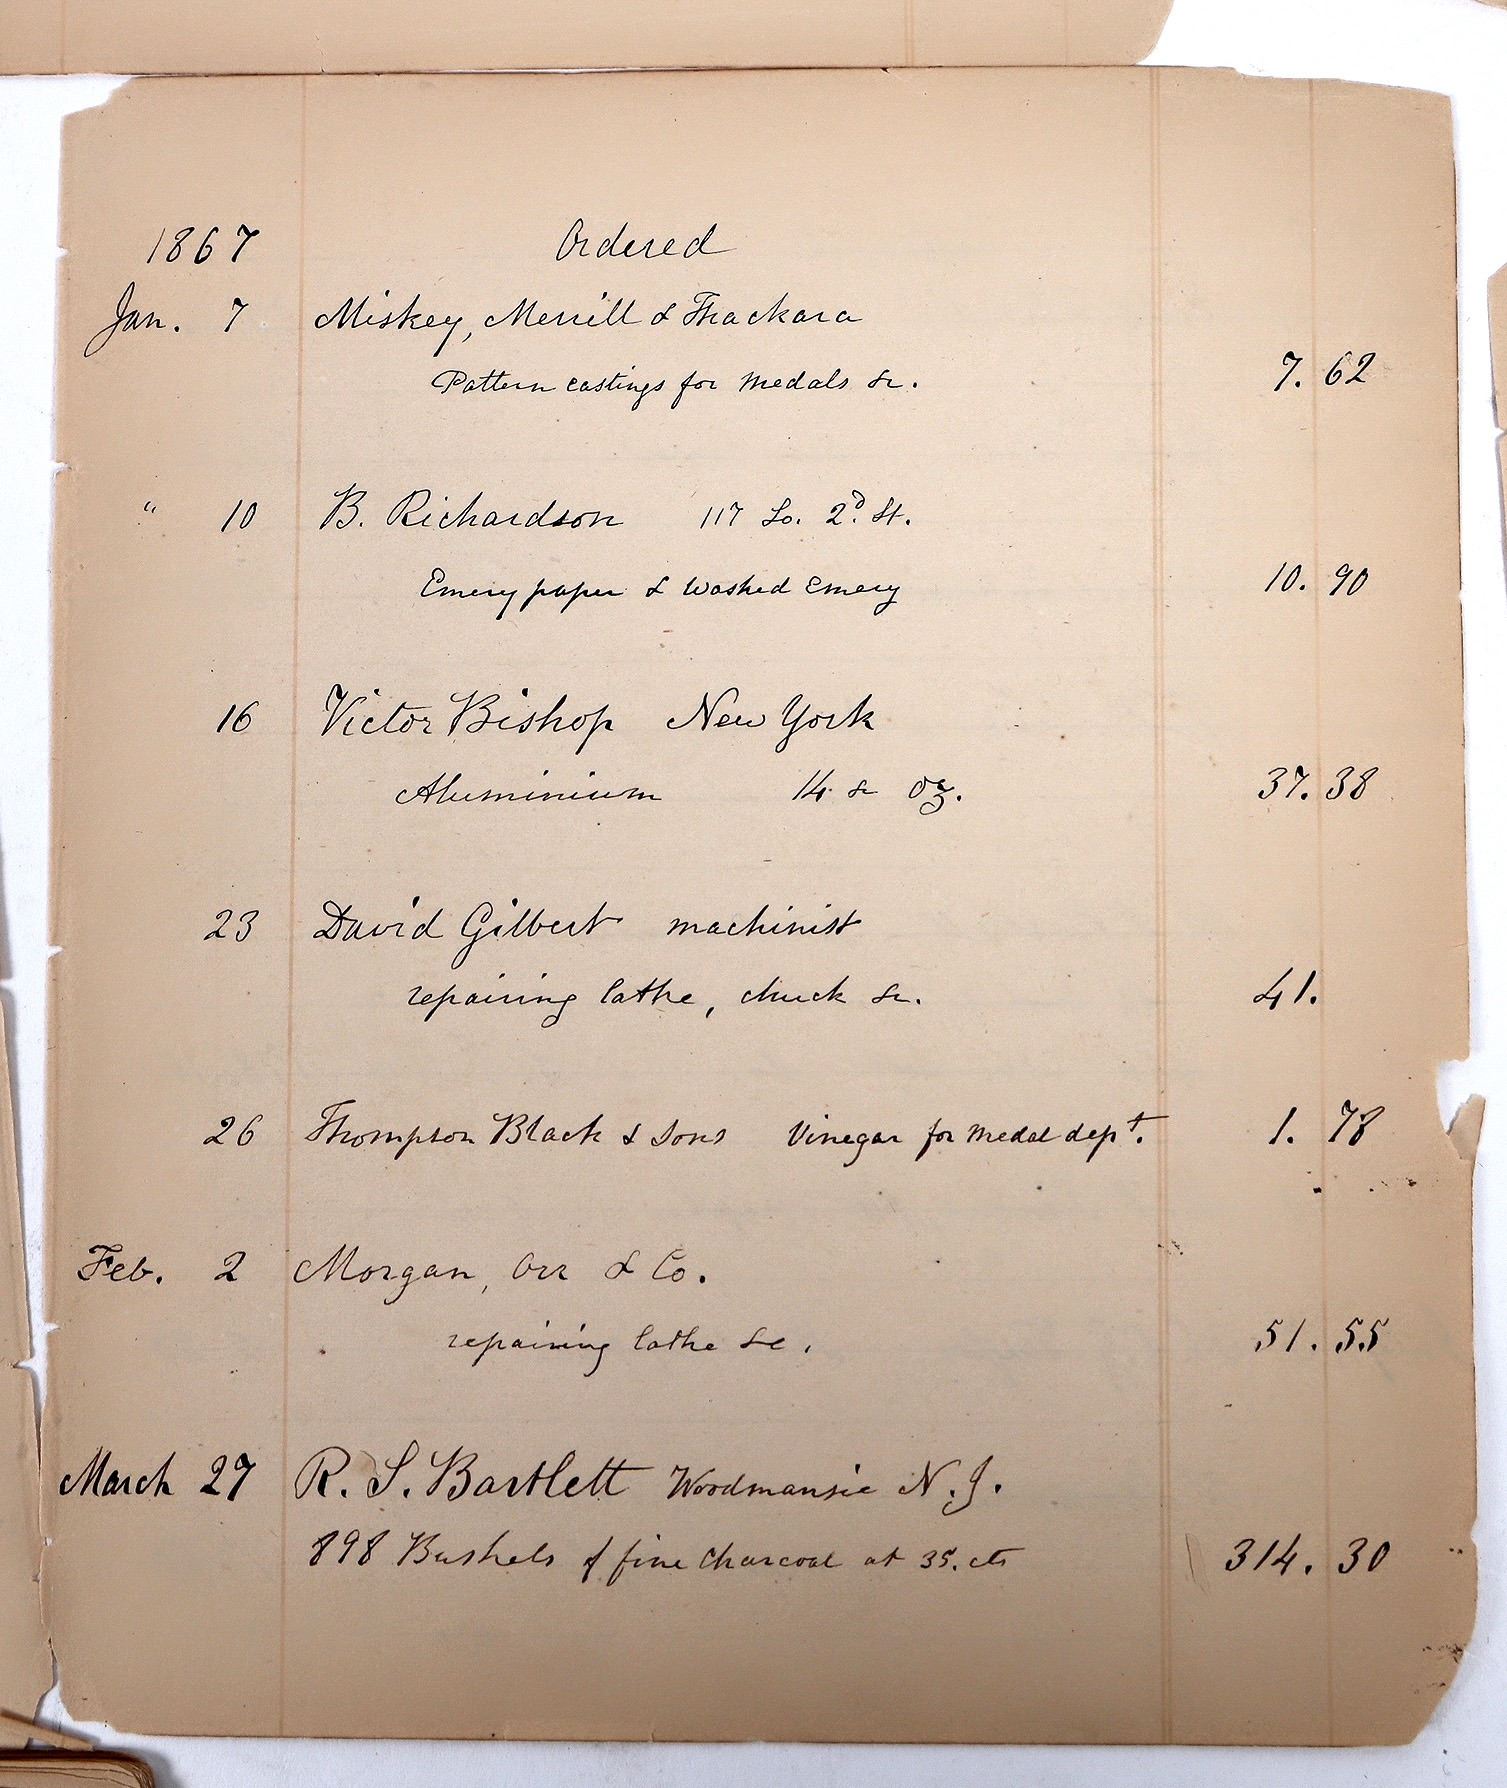 1867 Ordered
Jan. 7 Miskey, Merrill & Thackara
Pattern castings for medals &c. 7. 62
" 10 B. Richardson 117 So. 2d. St.
Emery paper & washed Emery 10. 90
16 Victor Bishop New York
Aluminium 14 & oz. 37. 38
23 David Gilbert machinist
repairing lathe, chuck &c. 41.
26 Thompson Black & Sons Vinegar for medal dept. 1. 78
Feb. 2 Morgan, Orr & Co.
repairing lathe &c. 51. 55
March 27 R. S. Bartlett Woodmansie N. J.
898 Bushels of fine charcoal at 35. cts 314. 30